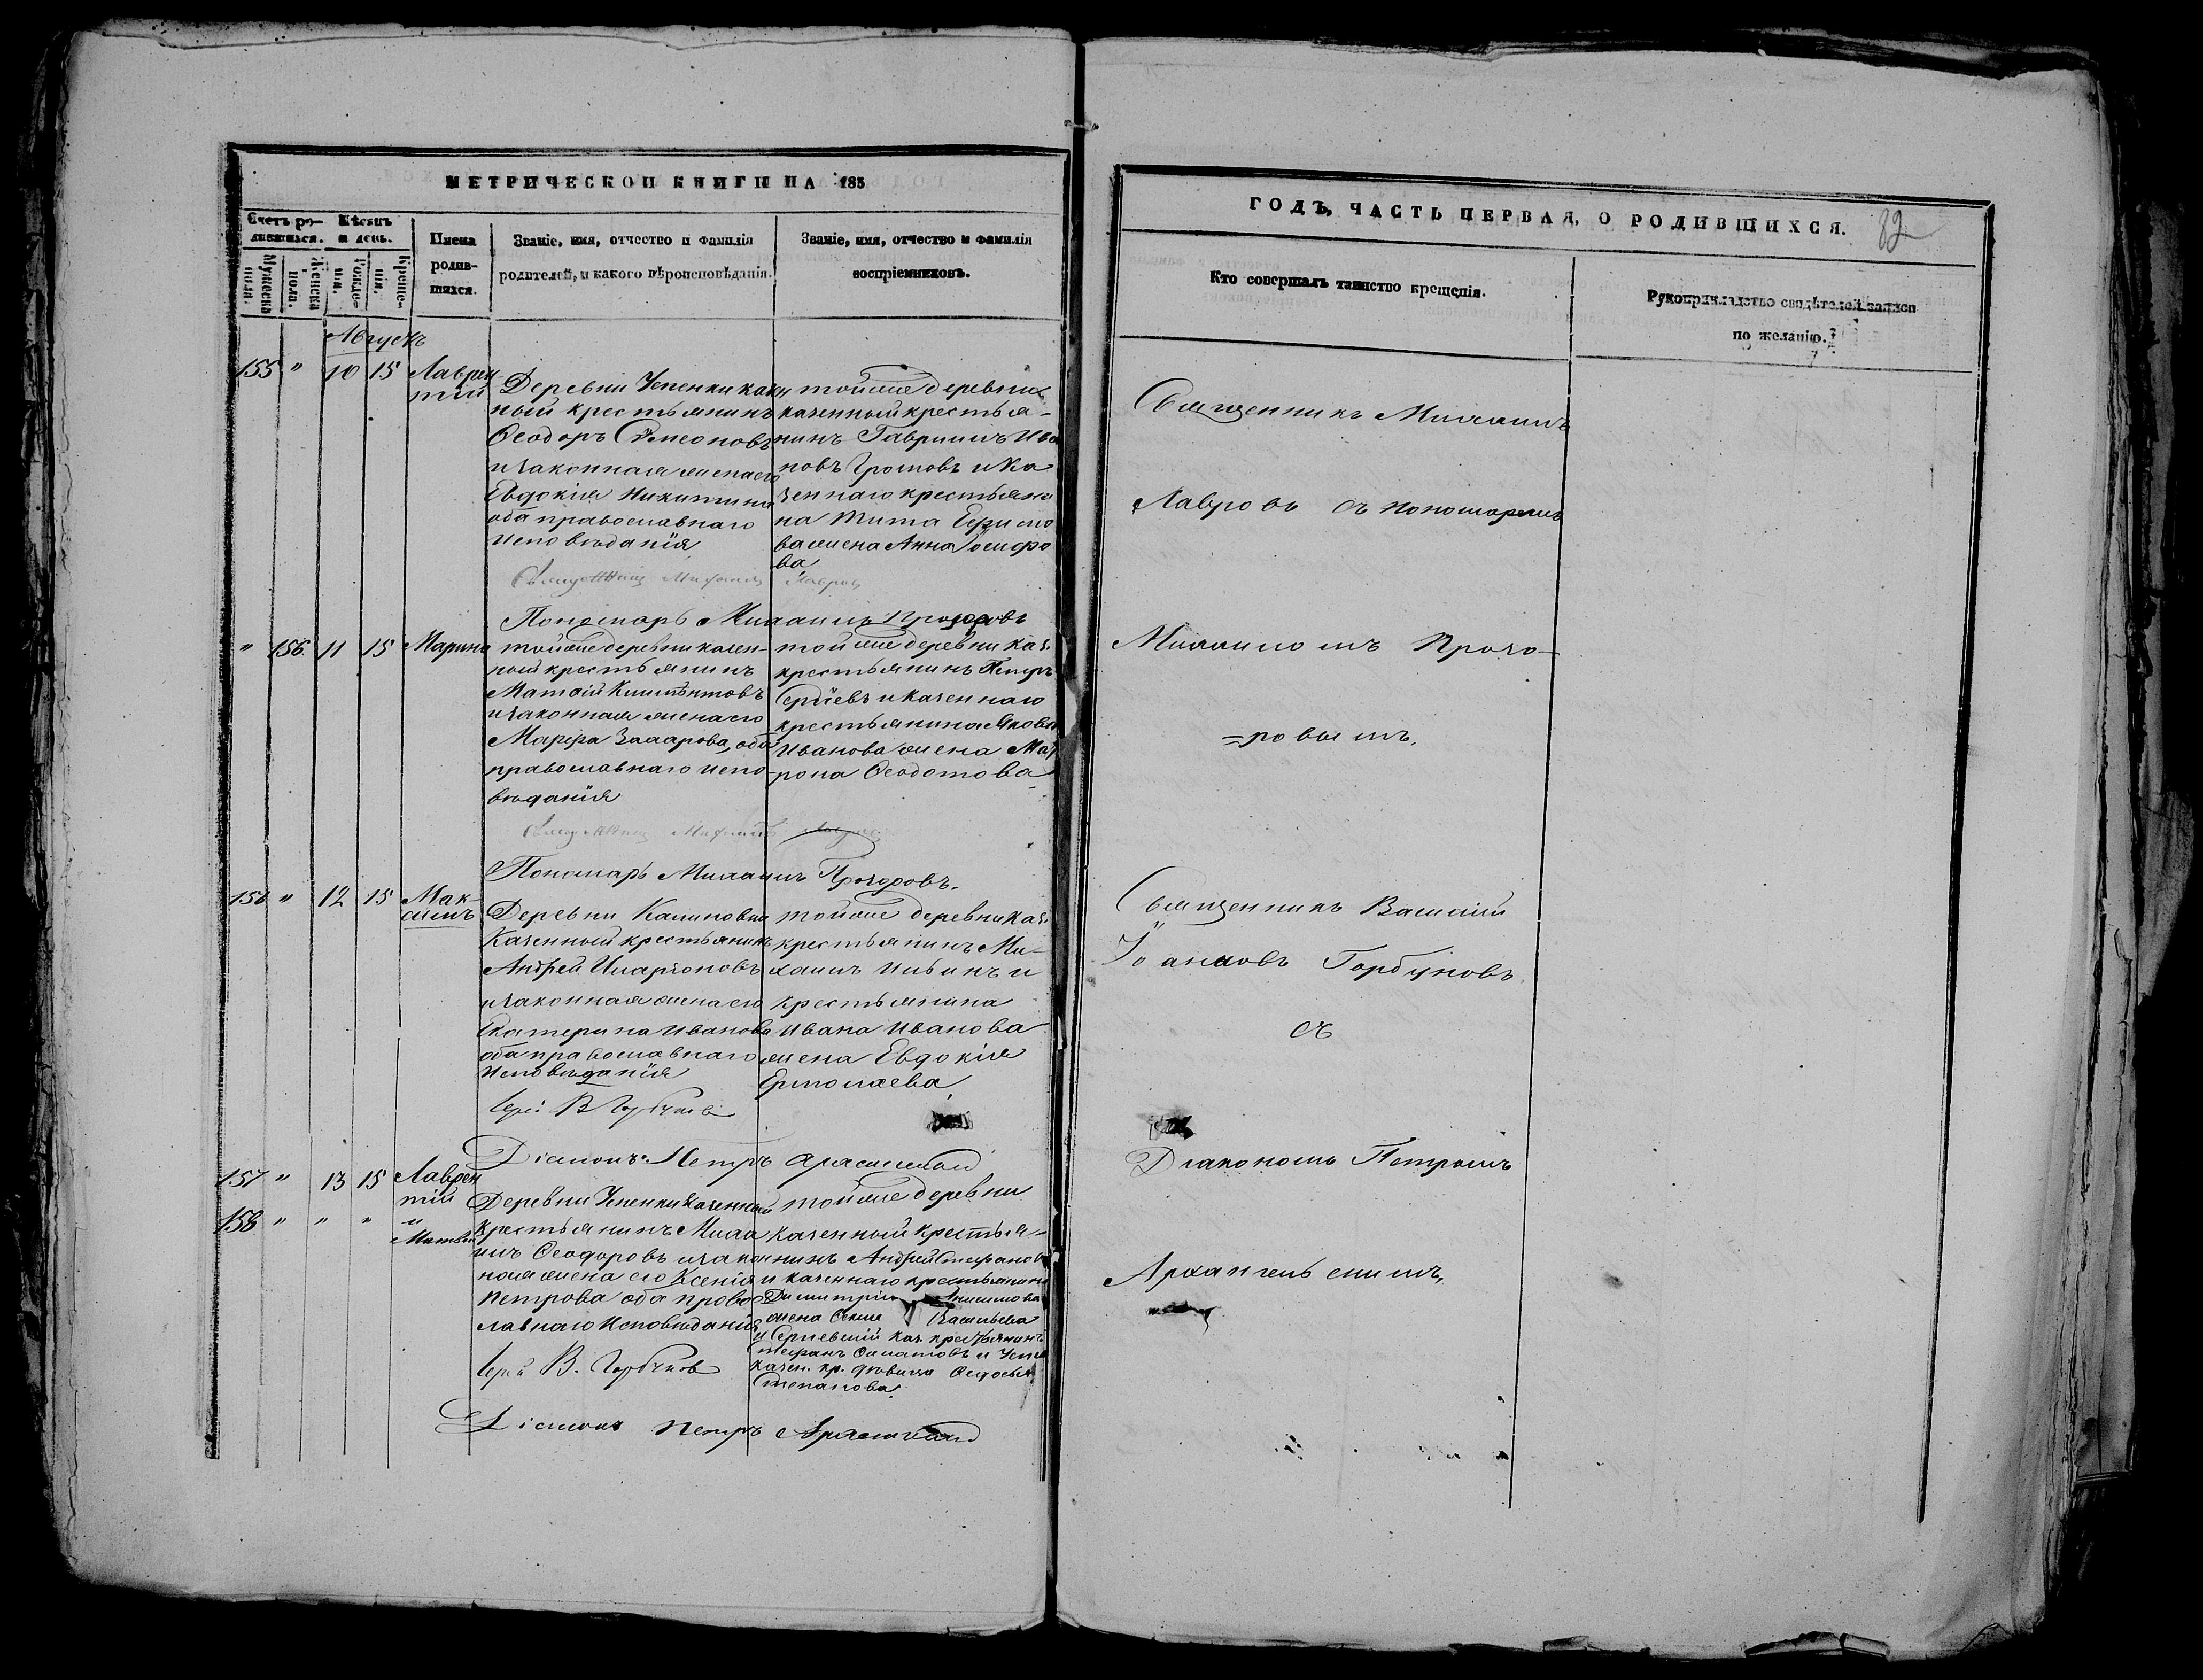 МЕТРИЧЕСКОЙ КНИГИ НА 185
Счетъ ро-
дившихся.
Мѣсяцъ
и день.
Мужеска
пола.
Женска
пола.
Рожде-
нія.
Креще-
нія.
Имена
родив-
шихся.
Званіе, имя, отчество и фамилія
родителей, и какого вѣроисповѣданія.
Званіе, имя, отчество и фамилія
воспріемниковъ.
Августъ
155 " 10 15 Лаврен
тій
Деревни Успенки казен
ный крестьянинъ
Ѳеодоръ Симеоновъ
и законная жена его
Евдокія Никитина
оба православнаго
исповѣданія
тойже деревни
казенный крестья-
нинъ Гавріилъ Ива
новъ Громовъ и ка
зеннаго крестьяни
на Тита Ефимо
ва жена Анна
ва
Священникъ Михаилъ Лавровъ
Пономарь Михаилъ Прозоровъ
" 156 11 15 Марина
тойже деревни казен-
ный крестьянинъ
Матѳій
и законная жена его
Марфа Захарова, оба
православнаго испо-
вѣданія
тойже деревни каз.
крестьянинъ Петръ
Сергіевъ и казеннаго
крестьянина Якова
Иванова жена Мат
рона Ѳеодотова
Священникъ Михаилъ Лавровъ
Пономарь Михаилъ Прозоровъ.
156 " 12 15 Мак-
симъ
Деревни Калиновки
казенный крестьянинъ
Андрей Иларіоновъ
и законная жена его
Екатерина Иванова
оба православнаго
исповѣданія
тойже деревни каз.
крестьянинъ Ми-
хаилъ Ильинъ и
крестьянина
Ивана Иванова
жена Евдокія
Ермолаева
Іерей В Горбуновъ
Діаконъ Петръ Архангельскій
157 " 13 15 Лаврен
тій
158 " " " и
Матвей
Деревни Успенки казенный
крестьянинъ Миха
илъ Ѳеодоровъ и закон
ная жена его Ксенія
Петрова оба правос
лавнаго исповѣданія
тойже деревни
казенный крестья-
нинъ Андрей Стефановъ
и казеннаго крестьянина
Димитрія Анисимова
жена Васильева
и каз. крестьянинъ
и
казен. кр. дѣвица Ѳедосья
Степанова
Іерей В. Горбуновъ
Діаконъ Петръ Архангельскій
ГОДЪ, ЧАСТЬ ПЕРВАЯ, О РОДИВШИХСЯ.
82
Кто совершалъ таинство крещенія.
Рукоприкладство свидѣтелей записи
по желанію.
Священникъ Михаилъ
Лавровъ съ пономаремъ
Михаиломъ Прозо-
=ровымъ.
Священникъ Василій
Іоанновъ Горбуновъ
съ
Діакономъ Петромъ
Архангельскимъ.